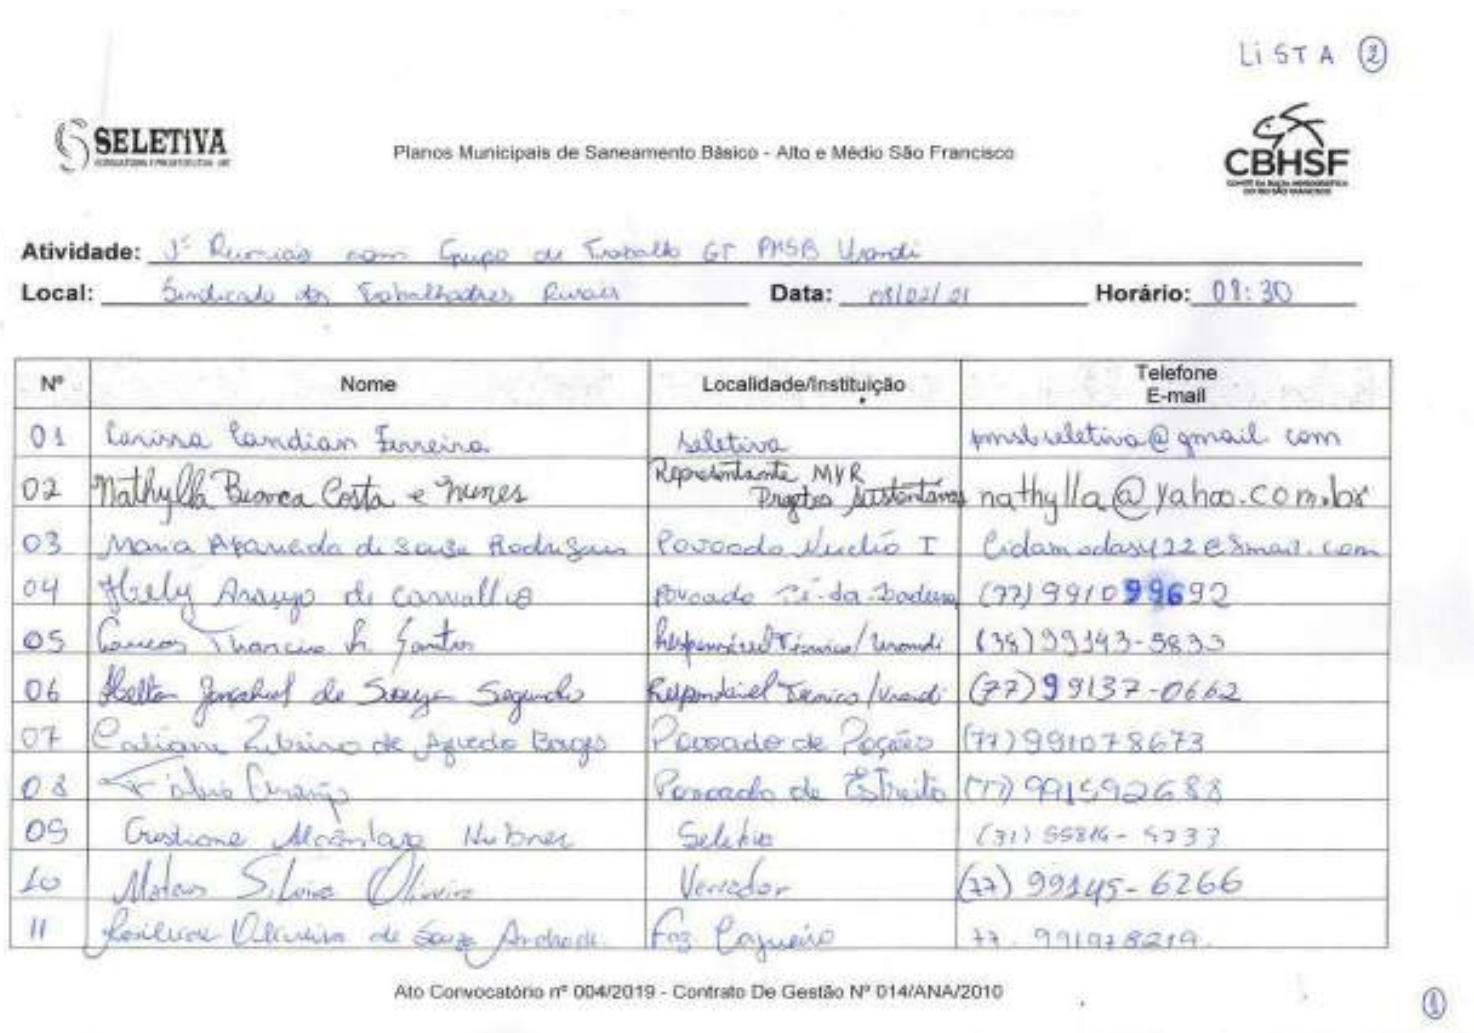 LiSTA ②
SELETIVA
Planos Municipais de Saneamento Básico - Alto e Médio São Francisco
CBHSF
COMITÊ DA BACIA HIDROGRÁFICA
DO RIO SÃO FRANCISCO
Atividade: 1ª Reunião com Grupo de Trabalho GT PMSB Urandi
Local: Sindicato dos Trabalhadores Rurais Data: 08/02/21 Horário: 08:30
Nº Nome Localidade/Instituição Telefone
E-mail
01 Larissa Candian Ferreira Seletiva pmsbseletiva@gmail.com
02 Nathylla Bianca Costa e Nunes Representante MYR
Projetos Sustentáveis nathylla@yahoo.com.br
03 Maria Aparecida de Souza Rodrigues Povoado Núcleo I
04 Hely Araujo de Carvalho Povoado Pé-da-Ladeira (77) 991099692
05 Tharcius Santos Responsável Técnico/Urandi (38) 99143-5833
06 de Souza Segundo Responsável Técnico/Urandi (77) 99137-0662
07 Ribeiro de Azevedo Borges Povoado de Poções (77) 991078673
08 Povoado de Estreito (77) 991592688
09 Cristiane Alcântara Hubner Seletiva
10 Mateus Silveira Oliveira Vereador (77) 99145-6266
11 Oliveira de Souza Andrade Faz Cajueiro 77. 991978219.
Ato Convocatório nº 004/2019 - Contrato De Gestão Nº 014/ANA/2010
①